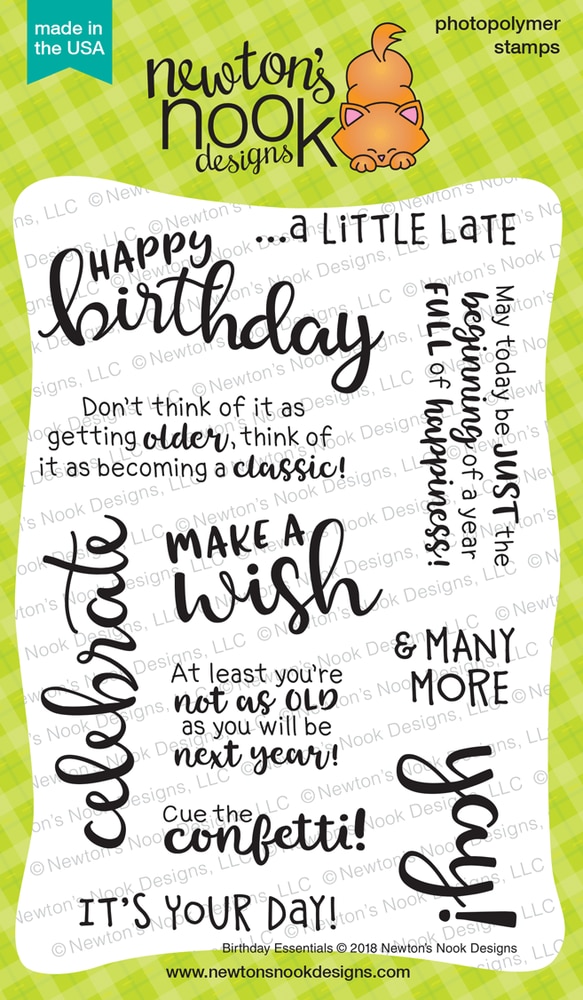 made in
the USA
newton's
nook
designs
photopolymer
stamps
...a LiTTLE LaTE
HAPPY
birthday
May today be JUST the
beginning of a year
FULL of happiness!
Don't think of it as
getting older, think of
it as becoming a classic!
celebrate
MAKE A
wish
& MANY
MORE
At least you're
not as OLD
as you will be
next year!
yay!
Cue the
confetti!
IT'S YOUR DaY!
Birthday Essentials © 2018 Newton's Nook Designs
www.newtonsnookdesigns.com
© Newton's Nook Designs, LLC